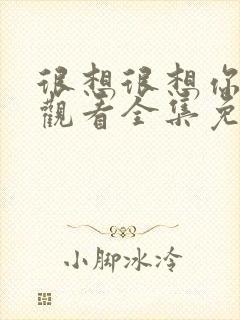 很想很想你
觀看全集免
小脚冰冷